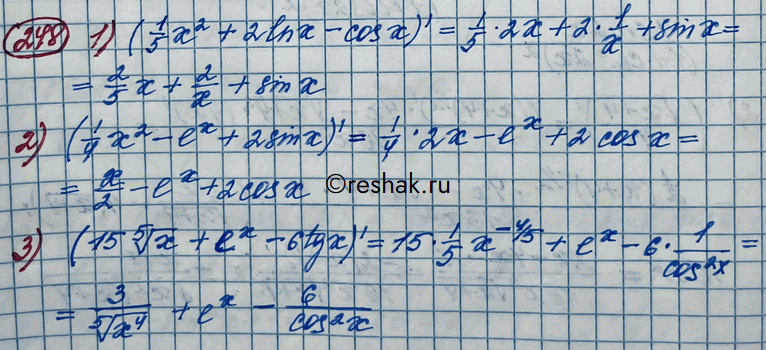 248 1) (1/5 x² + 2lnx - cosx)' = 1/5 · 2x + 2 · 1/x + sinx =
= 2/5 x + 2/x + sinx
2) (1/4 x² - eˣ + 2sinx)' = 1/4 · 2x - eˣ + 2cosx =
= x/2 - eˣ + 2cosx
©reshak.ru
3) (15 ⁵√x + eˣ - 6tgx)' = 15 · 1/5 x^(-4/5) + eˣ - 6 · 1/cos²x =
= 3/⁵√x⁴ + eˣ - 6/cos²x